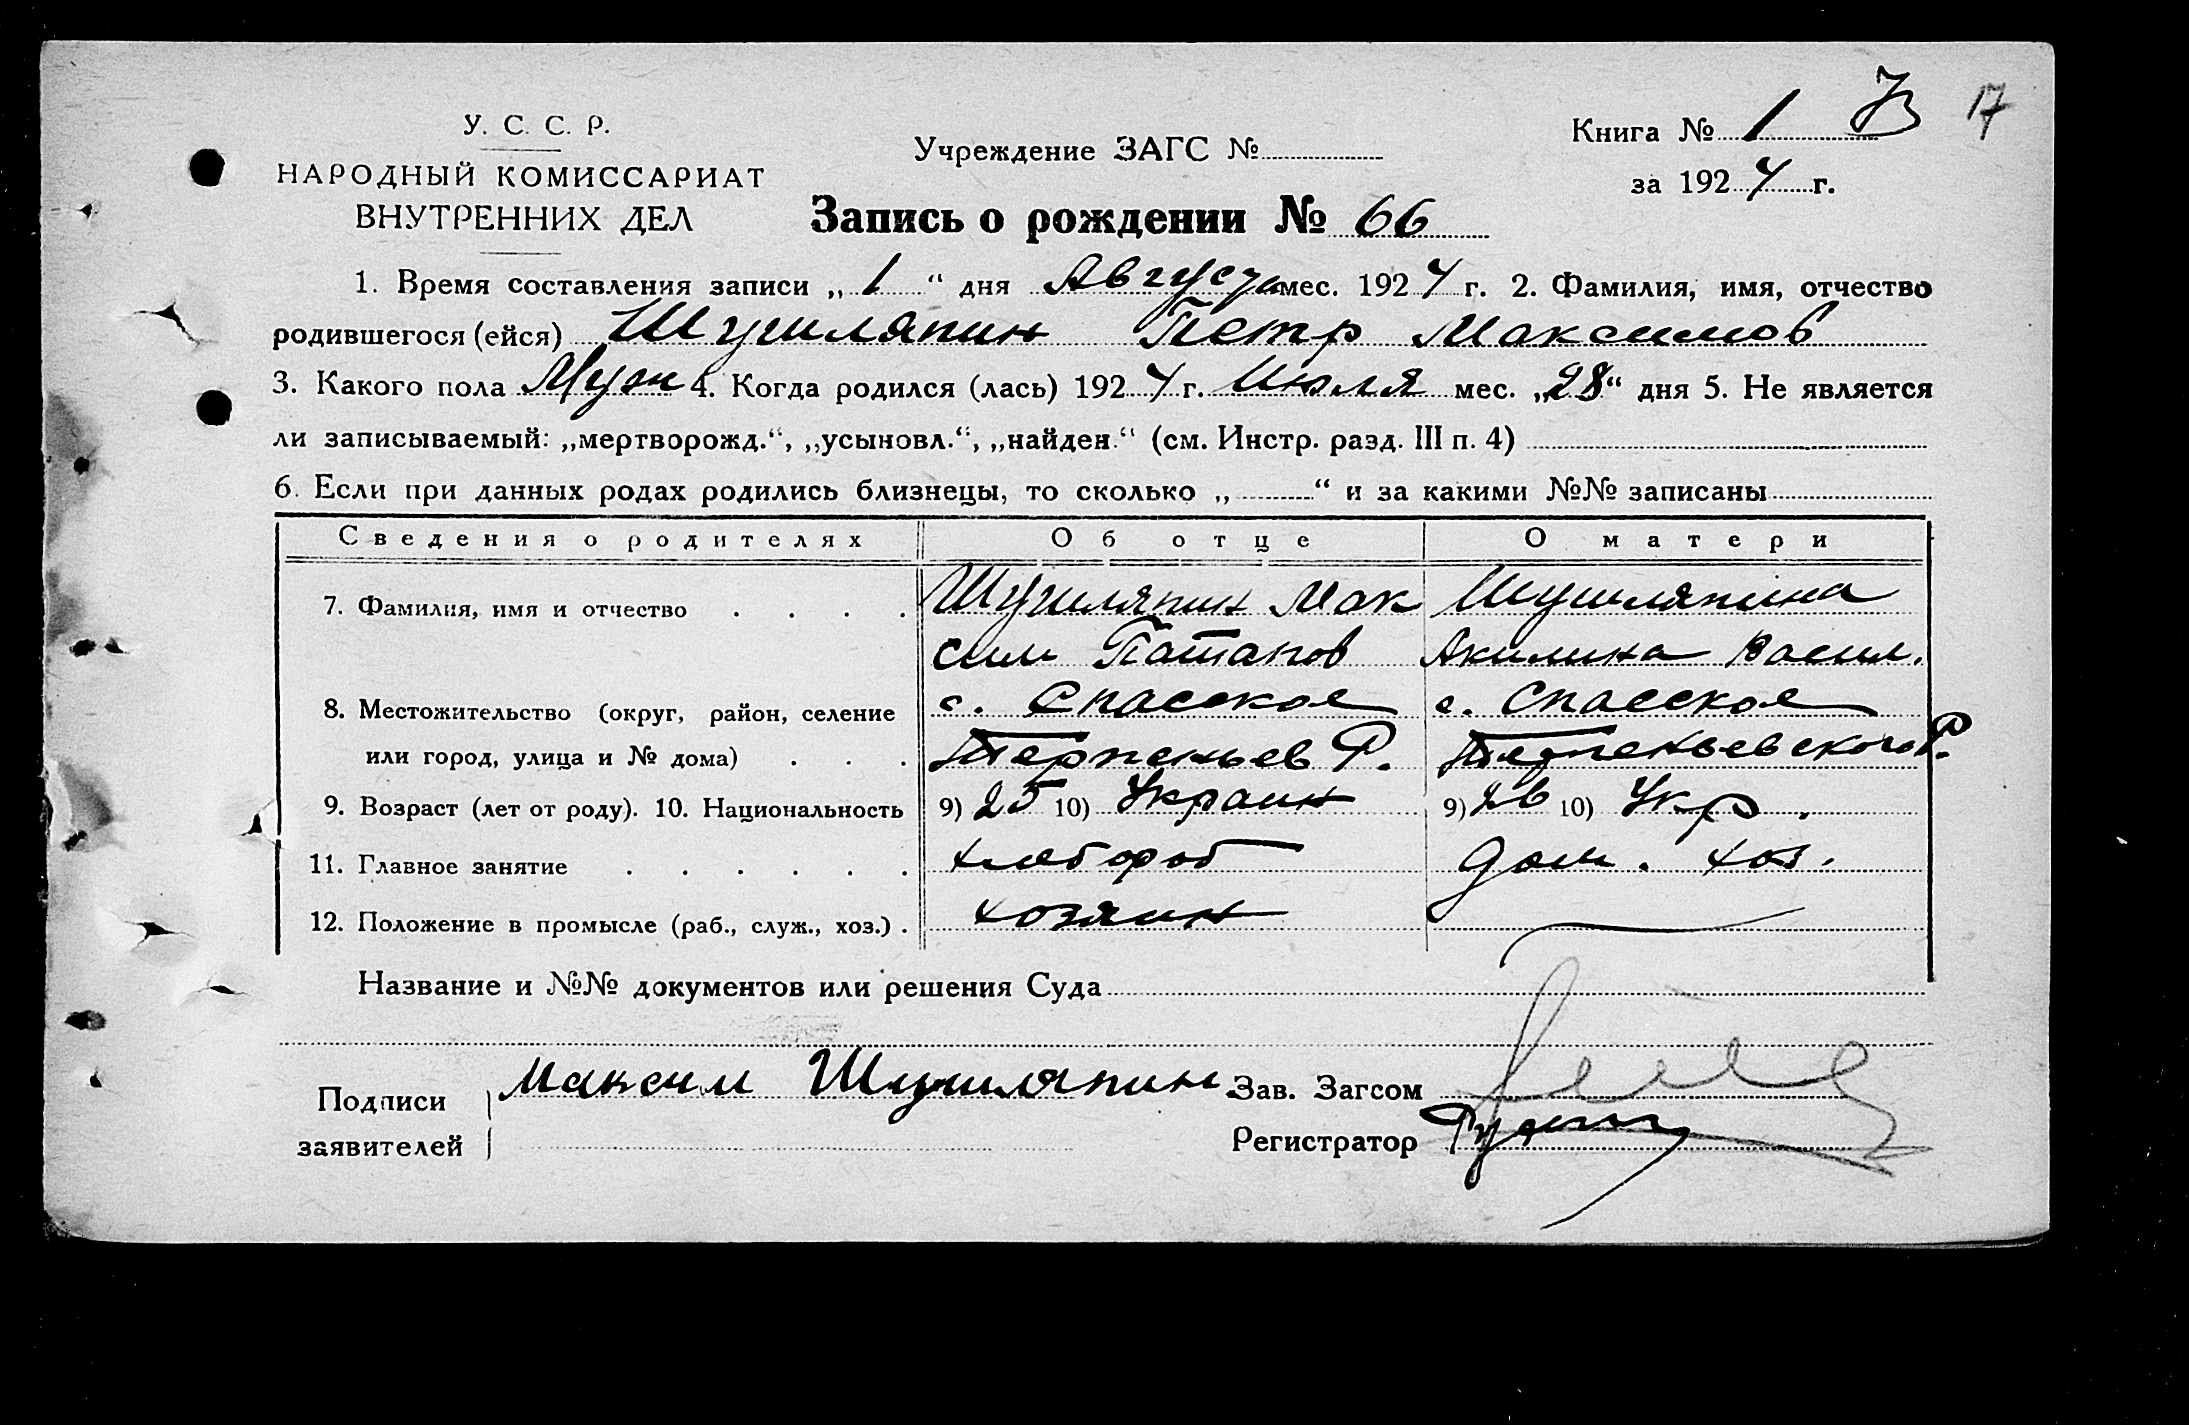 У. С. С. Р.
НАРОДНЫЙ КОМИССАРИАТ
ВНУТРЕННИХ ДЕЛ
Учреждение ЗАГС №
Книга № 1
17
за 1924 г.
Запись о рождении № 66
1. Время составления записи „1“ дня Августа мес. 1924 г. 2. Фамилия, имя, отчество
родившегося (ейся) Шушляпин Петр Максимов
3. Какого пола Муж 4. Когда родился (лась) 1924 г. Июля мес. „28“ дня 5. Не является
ли записываемый: „мертворожд.“, „усыновл.“, „найден.“ (см. Инстр. разд. III п. 4)
6. Если при данных родах родились близнецы, то сколько „ “ и за какими №№ записаны
Сведения о родителях Об отце О матери
7. Фамилия, имя и отчество . . . . Шушляпин Мак Шушляпина
сим Потапов Акилина Васил.
8. Местожительство (округ, район, селение с. Спасское с. Спасское
или город, улица и № дома) . . . Терпеньев Р. Терпеньевского Р.
9. Возраст (лет от роду). 10. Национальность 9) 25 10) Украин 9) 26 10) Укр.
11. Главное занятие . . . . . . хлебороб дом. хоз.
12. Положение в промысле (раб., служ., хоз.) . хозяин
Название и №№ документов или решения Суда
Подписи Максим Шушляпин Зав. Загсом
заявителей Регистратор